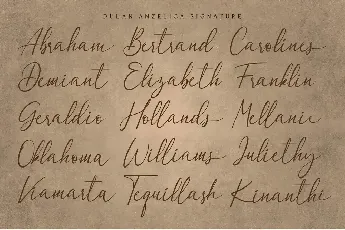 DULAN ANZELICA SIGNATURE
Abraham Bertrand Carolines
Demiant Elizabeth Franklin
Geraldio Hollands Mellanie
Oklahoma Williams Juliethy
Kamarta Tequillash Kinanthi